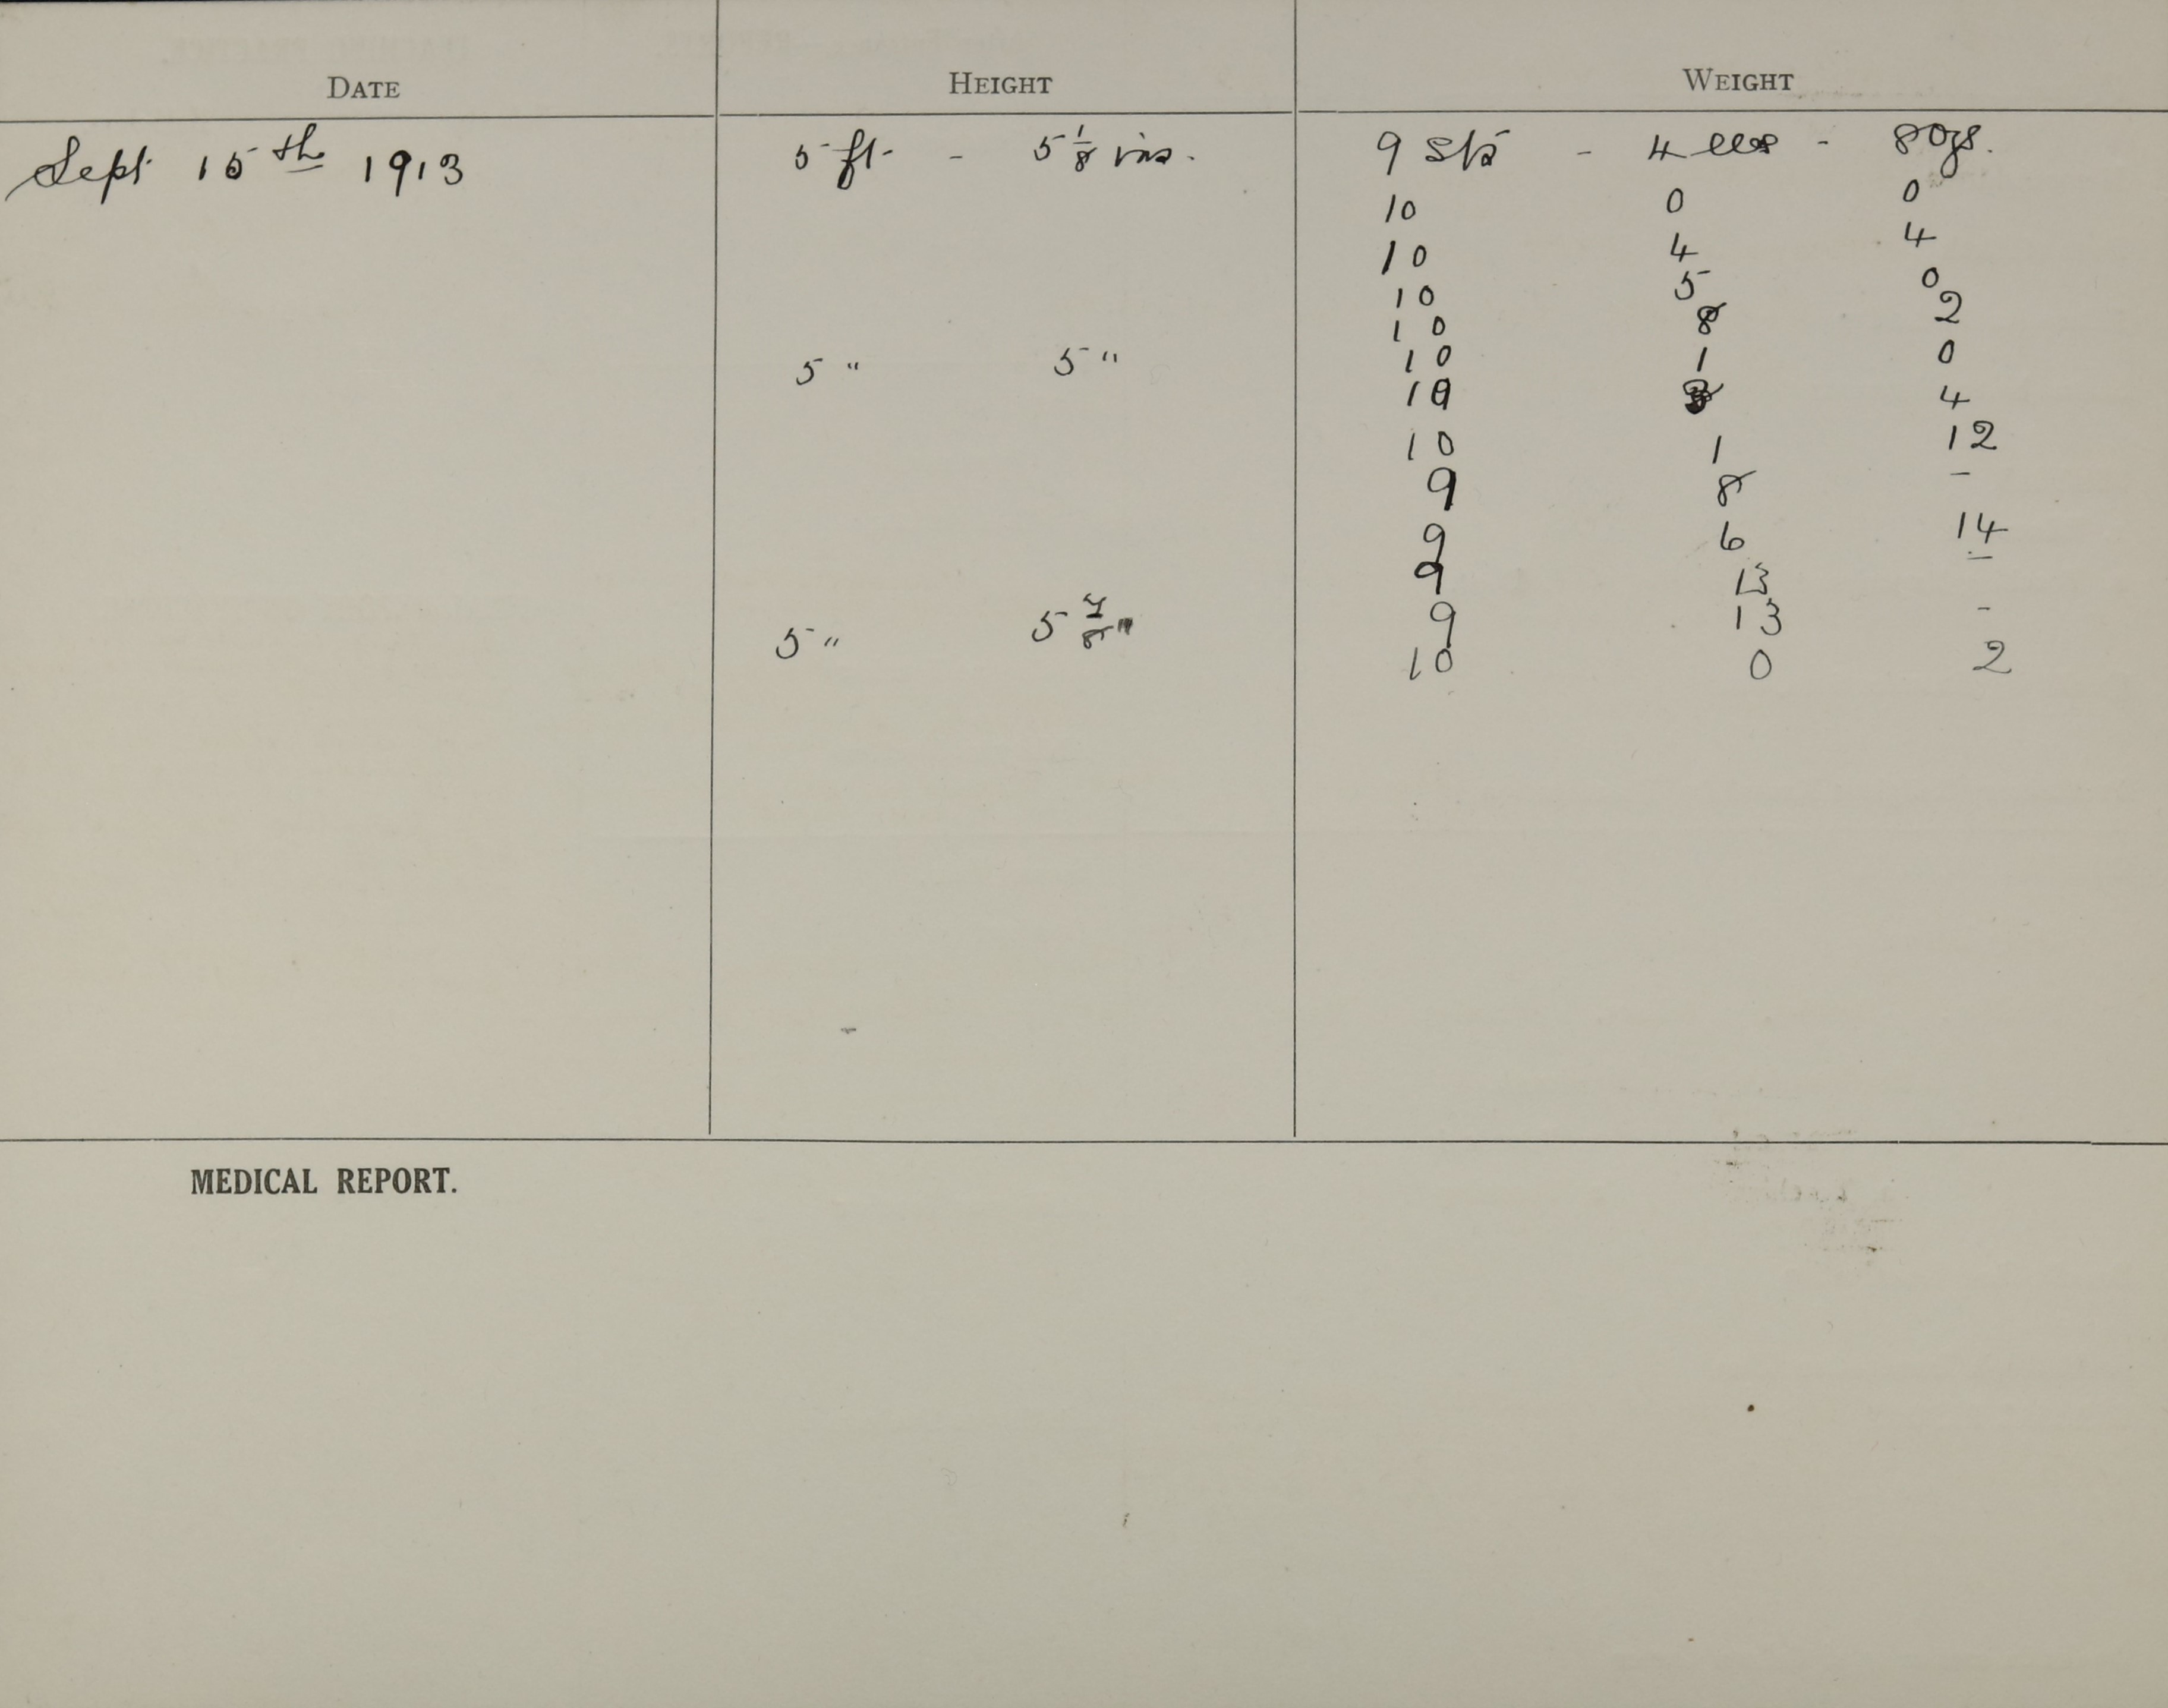 DATE HEIGHT WEIGHT
Sept 15th 1913 5 ft - 5 1/8 ins. 9 sts - 4 lbs - 8 ozs.
10 0 0
10 4 4
10 5 0
10 8 2
5 " 5 " 10 1 0
10 4
10 1 12
9 8 –
9 6 14
9 13 –
5 " 5 7/8 " 9 13 -
10 0 2
MEDICAL REPORT.